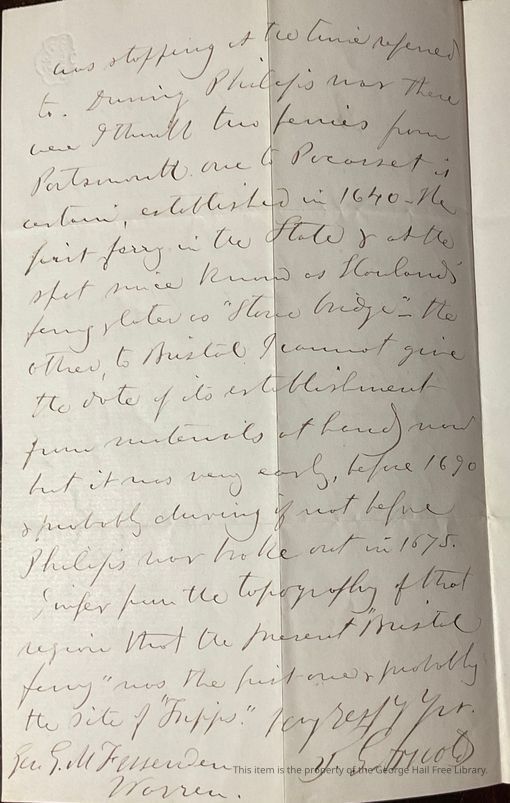 was stopping at the time referred
to. During Philip's war there
were I think two ferries from
Portsmouth. one to Pocasset is
certain, established in 1640 - the
first ferry in the State & at the
spot since known as Howland's
ferry & later as "Stone bridge" - the
other, to Bristol I cannot give
the date of its establishment
from materials at hand) now
but it was very early, before 1690
& probably during if not before
Philip's war broke out in 1675.
I infer from the topography of that
region that the present "Bristol
ferry" was the first one & probably
the site of "Tripps." Very resfy Yrs.
Gen. G. M. Fessenden S. G. Arnold
Warren.
This item is the property of the George Hail Free Library.